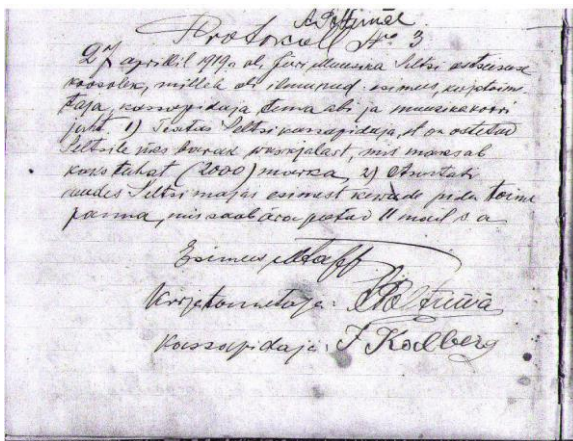 Protokoll No 3
27 aprillil 1919a oli Jüri Muusika Seltsi
koosolek, millele oli ilmunud esimees, kirjatoime
taja, kassapidaja tema abi ja muusikakoori
juht. 1) Teatas Seltsi kassapidaja, et on ostetud
Seltsile, mis maksab
kaks tuhat (2000) marka, 2) Arvutati
uudes Seltsi majas esimest kevade pidu toime
panna, mis saab ära peetud 11 mail s a
Esimees
Kirjatoimetaja:
Kassapidaja: J Kodberg